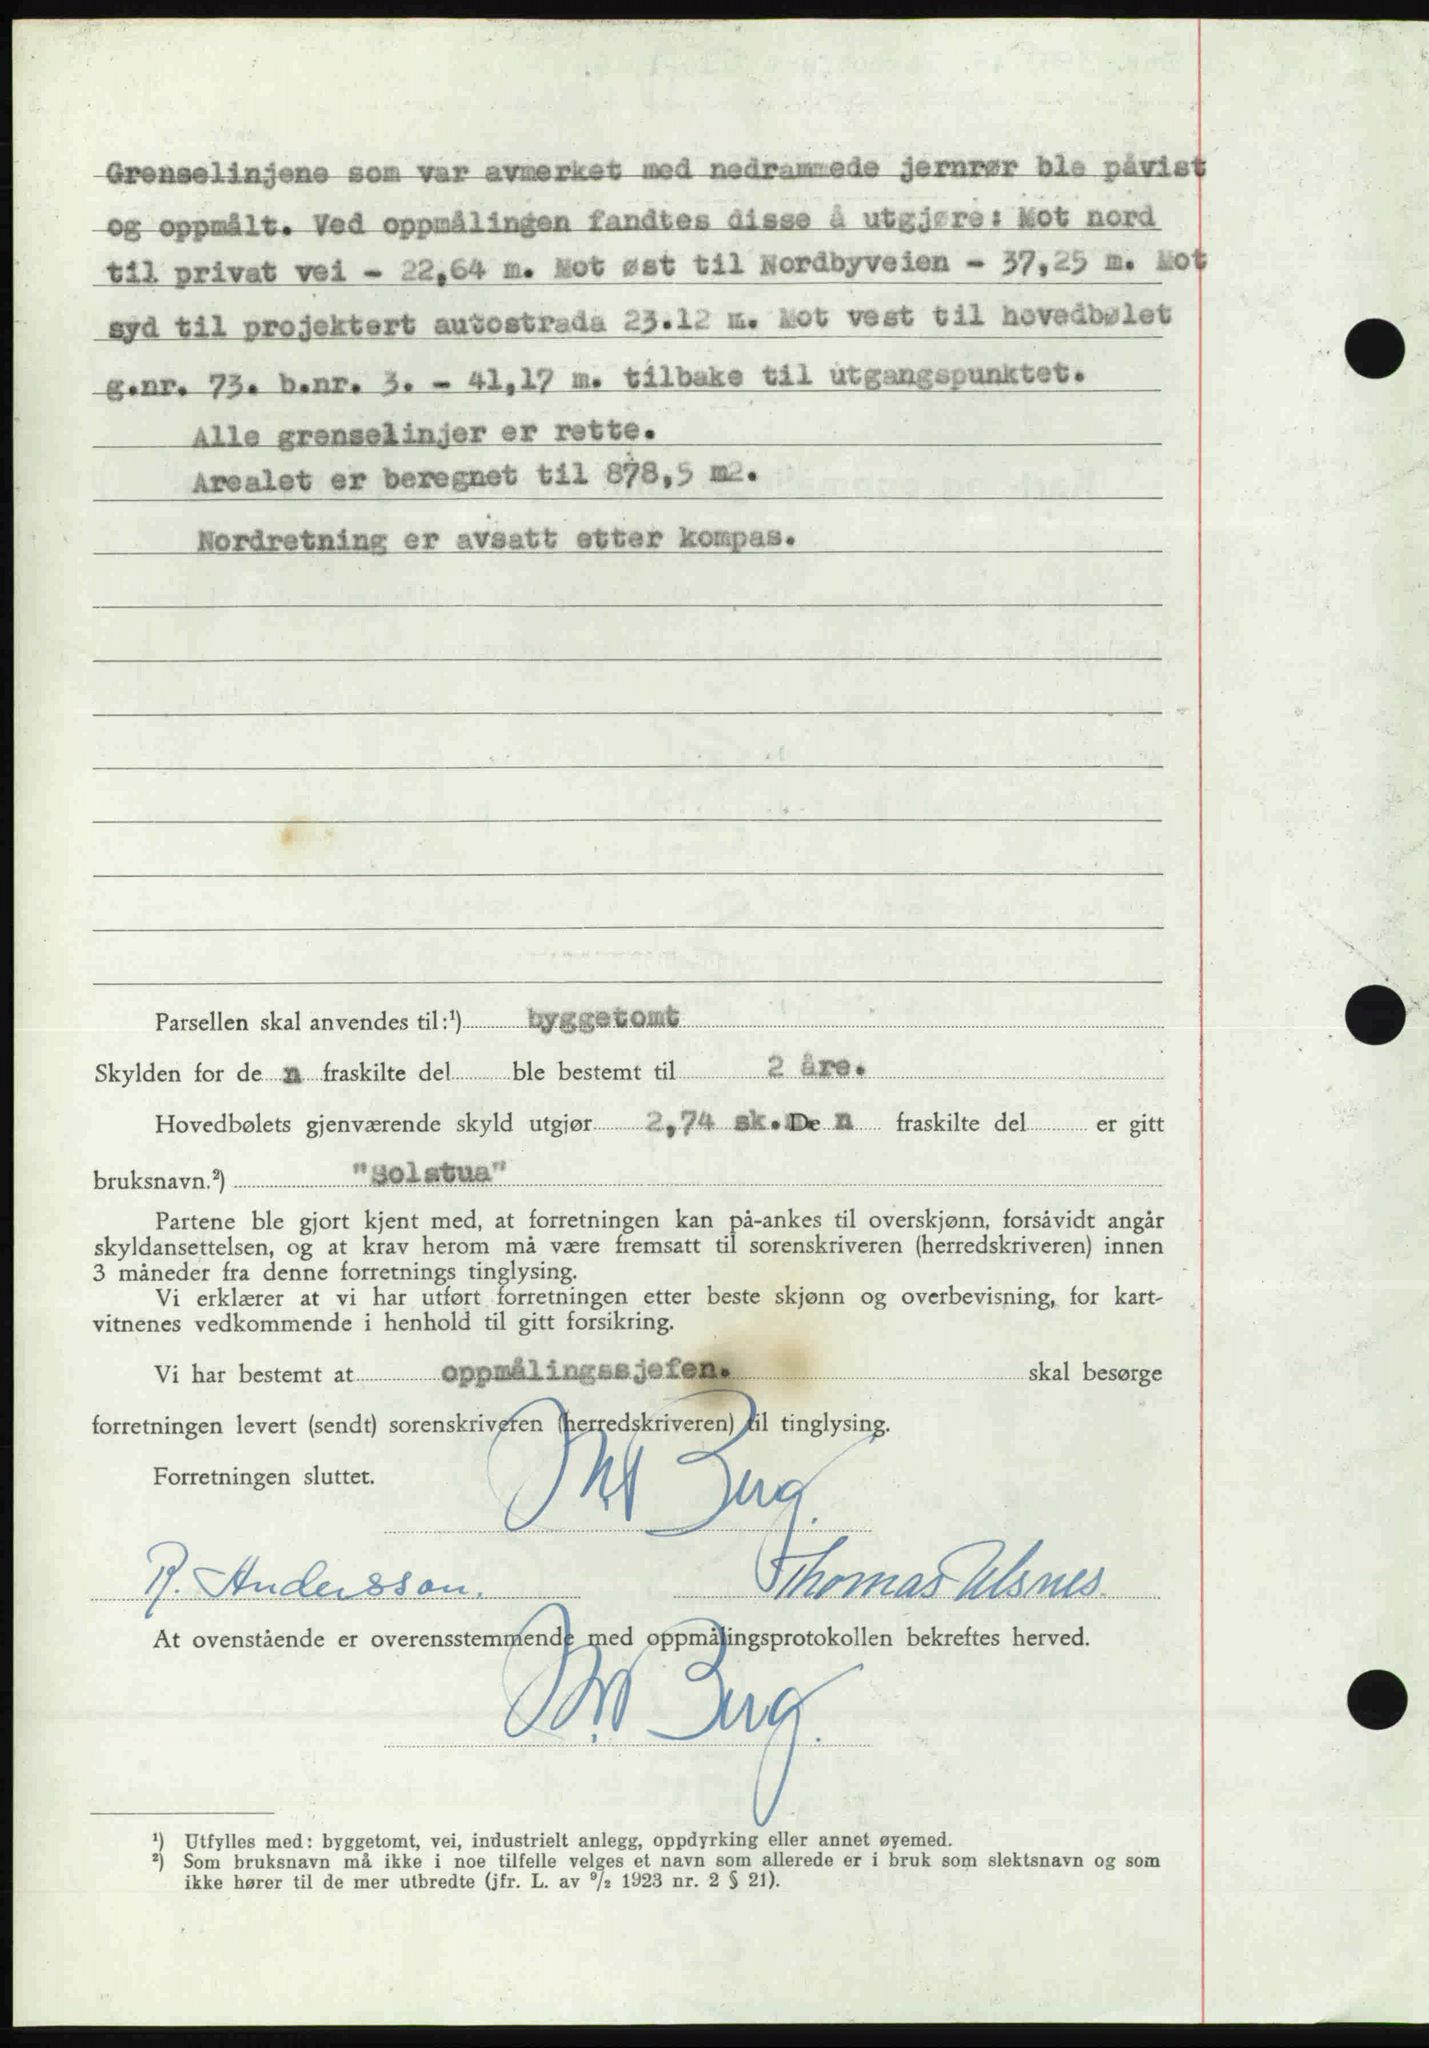 Grenselinjene som var avmerket med nedrammede jernrør ble påvist
og oppmålt. Ved oppmålingen fandtes disse å utgjøre: Mot nord
til privat vei - 22,64 m. Mot øst til Nordbyveien - 37,25 m. Mot
syd til projektert autostrada 23.12 m. Mot vest til hovedbølet
g.nr. 73. b.nr. 3. - 41,17 m. tilbake til utgangspunktet.
Alle grenselinjer er rette.
Arealet er beregnet til 878,5 m2.
Nordretning er avsatt etter kompas.
Parsellen skal anvendes til:¹) byggetomt
Skylden for de n fraskilte del ble bestemt til 2 åre.
Hovedbølets gjenværende skyld utgjør 2,74 sk. De n fraskilte del er gitt
bruksnavn.²) "Solstua"
Partene ble gjort kjent med, at forretningen kan på-ankes til overskjønn, forsåvidt angår
skyldansettelsen, og at krav herom må være fremsatt til sorenskriveren (herredskriveren) innen
3 måneder fra denne forretnings tinglysing.
Vi erklærer at vi har utført forretningen etter beste skjønn og overbevisning, for kart-
vitnenes vedkommende i henhold til gitt forsikring.
Vi har bestemt at oppmålingssjefen. skal besørge
forretningen levert (sendt) sorenskriveren (herredskriveren) til tinglysing.
Forretningen sluttet.
Berg.
R. Andersson. Thomas Ulsnes.
At ovenstående er overensstemmende med oppmålingsprotokollen bekreftes herved.
Berg.
¹) Utfylles med: byggetomt, vei, industrielt anlegg, oppdyrking eller annet øyemed.
²) Som bruksnavn må ikke i noe tilfelle velges et navn som allerede er i bruk som slektsnavn og som
ikke hører til de mer utbredte (jfr. L. av ⁹/₂ 1923 nr. 2 § 21).